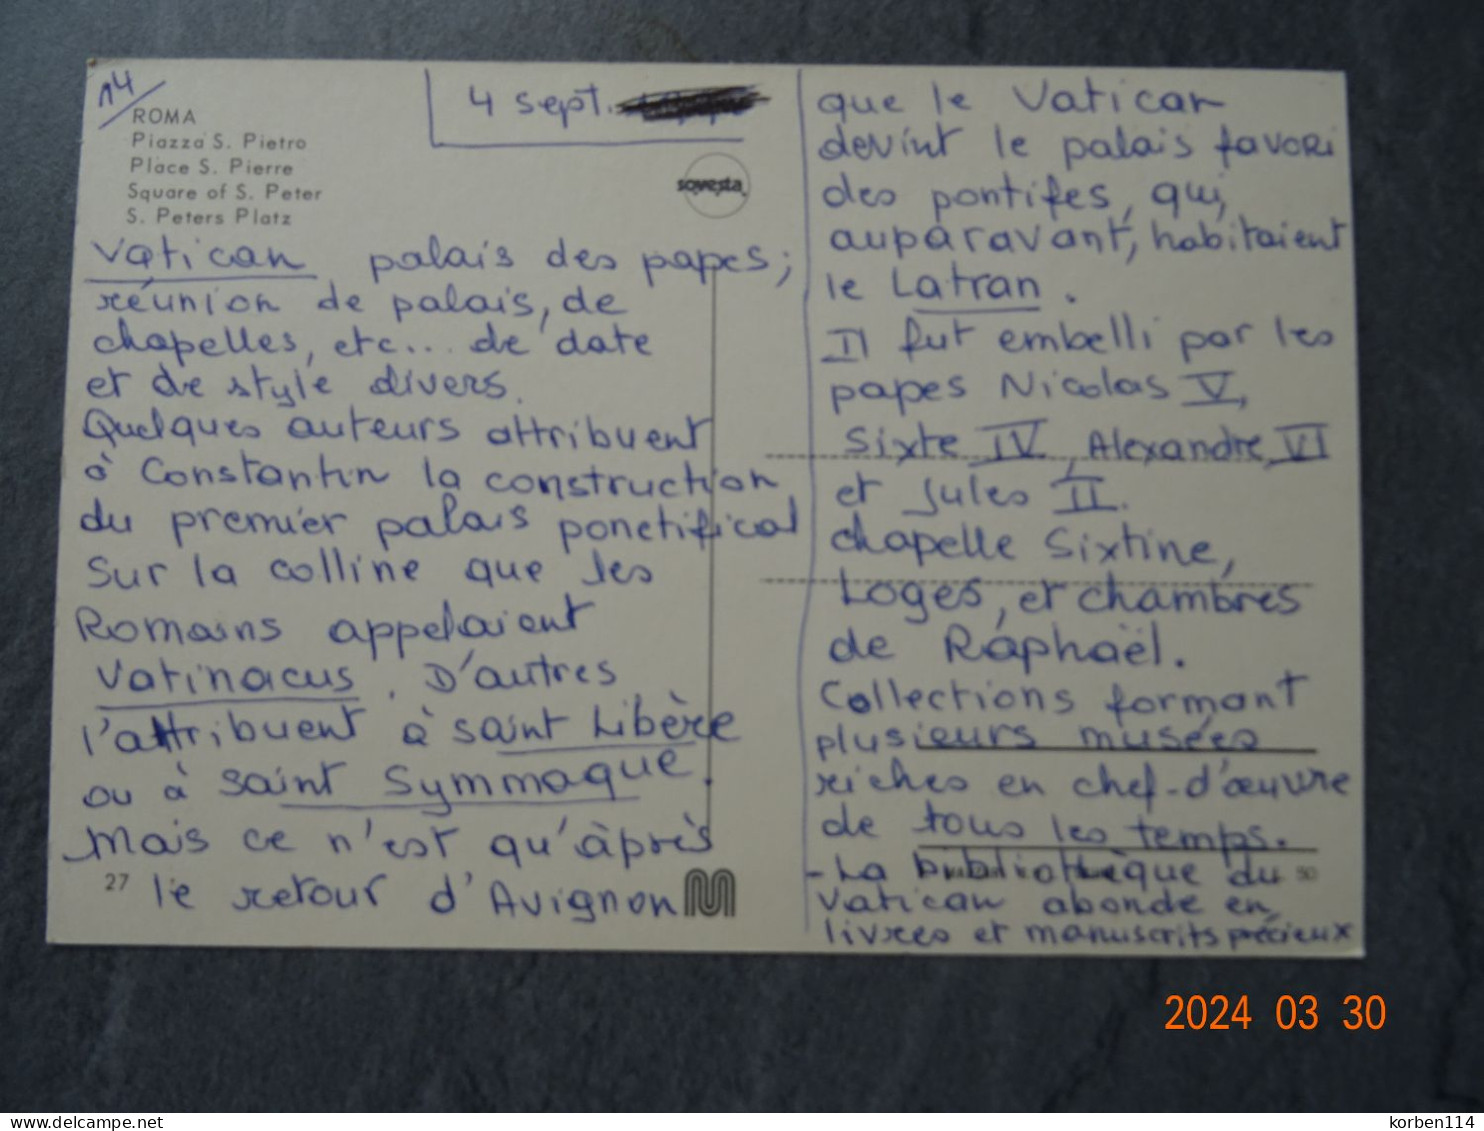 14
ROMA
Piazza S. Pietro
Place S. Pierre
Square of S. Peter
S. Peters Platz
4 sept.
sovesta
Vatican palais des papes;
réunion de palais, de
chapelles, etc... de date
et de style divers.
Quelques auteurs attribuent
à Constantin la construction
du premier palais ponctifical
Sur la colline que les
Romains appelaient
Vatinacus. D'autres
l'attribuent à saint Libère
ou à saint Symmaque.
Mais ce n'est qu'àprès
le retour d'Avignon
27
que le Vatican
devint le palais favori
des pontifes, qui,
auparavant, habitaient
le Latran.
Il fut embelli par les
papes Nicolas V,
Sixte IV, Alexandre VI
et Jules II.
chapelle Sixtine,
Loges, et chambres
de Raphaël.
Collections formant
plusieurs musées
riches en chef-d'œuvre
de tous les temps.
- La bibliothèque du
50
Vatican abonde en
livres et manuscrits précieux
2024 03 30
delcampe.net
korben114